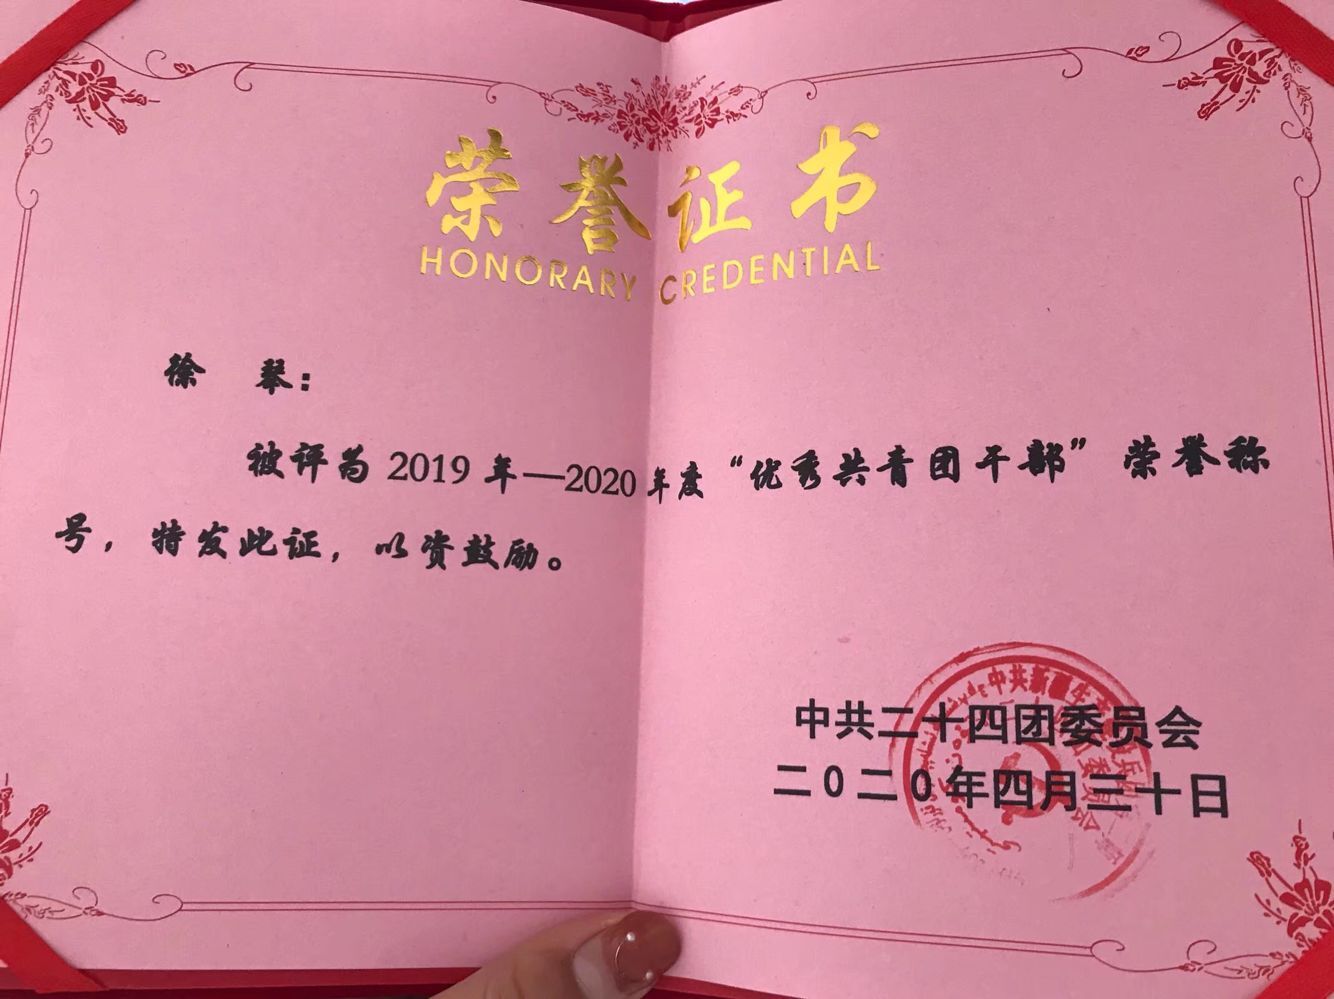 荣誉证书
HONORARY CREDENTIAL
徐 琴：
被评为2019年—2020年度“优秀共青团干部”荣誉称
号，特发此证，以资鼓励。
中共二十四团委员会
二0二0年四月三十日